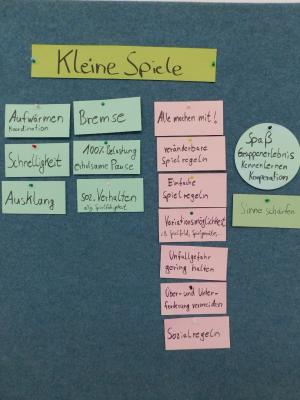 Kleine Spiele
Aufwärmen
Koordination
Schnelligkeit
Ausklang
Bremse
100% Belastung
erholsame Pause
Soz. Verhalten
allg. Spielfähigkeit
Alle machen mit!
veränderbare
Spielregeln
Einfache
Spielregeln
Variationsmöglichkeit
z.B. Spielfeld, Spielgeräte,...
Unfallgefahr
gering halten
Über- und Unter-
forderung vermeiden
Sozialregeln
Spaß
Gruppenerlebnis
Kennenlernen
Kooperation
Sinne schärfen